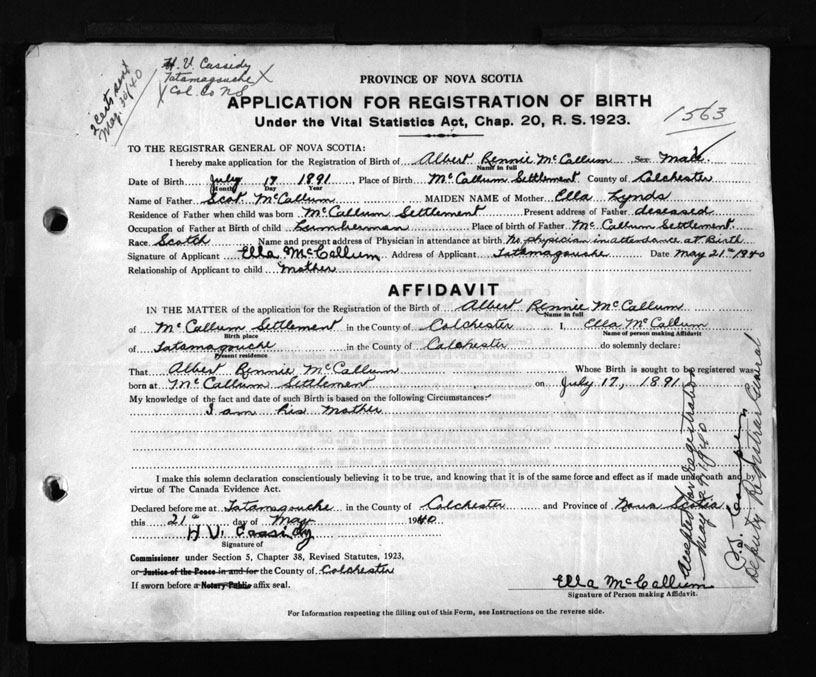 H. V. Cassidy
Tatamagouche X
X Col. Co NS
2 Certs sent
May. 30/40
PROVINCE OF NOVA SCOTIA
APPLICATION FOR REGISTRATION OF BIRTH
Under the Vital Statistics Act, Chap. 20, R. S. 1923.
1563
TO THE REGISTRAR GENERAL OF NOVA SCOTIA:
I hereby make application for the Registration of Birth of Albert Rennie McCallum Sex Male
Name in full
Date of Birth July 17 1891, Place of Birth McCallum Settlement County of Colchester
(Month) Day Year
Name of Father Scot. McCallum MAIDEN NAME of Mother Ella Lynds
Residence of Father when child was born McCallum Settlement Present address of Father deseased
Occupation of Father at Birth of child Lumberman Place of birth of Father McCallum Settlement.
Race Scotch Name and present address of Physician in attendance at birth No physician in attendance at Birth
Signature of Applicant Ella McCallum Address of Applicant Tatamagouche Date May 21st 1940
Relationship of Applicant to child Mother
AFFIDAVIT
IN THE MATTER of the application for the Registration of the Birth of Albert Rennie McCallum
Name in full
of McCallum Settlement in the County of Colchester I, Ella McCallum
Birth place Name of person making Affidavit
of Tatamagouche in the County of Colchester do solemnly declare:
Present residence
That Albert Rennie McCallum Whose Birth is sought to be registered was
born at McCallum Settlement on July 17, 1891
My knowledge of the fact and date of such Birth is based on the following Circumstances:
I am his Mother
I make this solemn declaration conscientiously believing it to be true, and knowing that it is of the same force and effect as if made under oath and
virtue of The Canada Evidence Act.
Declared before me at Tatamagouche in the County of Colchester and Province of Nova Scotia
this 21st day of May 1940
H. V. Cassidy
Signature of
Commissioner under Section 5, Chapter 38, Revised Statutes, 1923,
or Justice of the Peace in and for the County of Colchester
If sworn before a Notary Public affix seal.
Ella McCallum
Signature of Person making Affidavit.
For Information respecting the filling out of this Form, see Instructions on the reverse side.
Accepted for Registration
May 1940
Deputy Registrar General